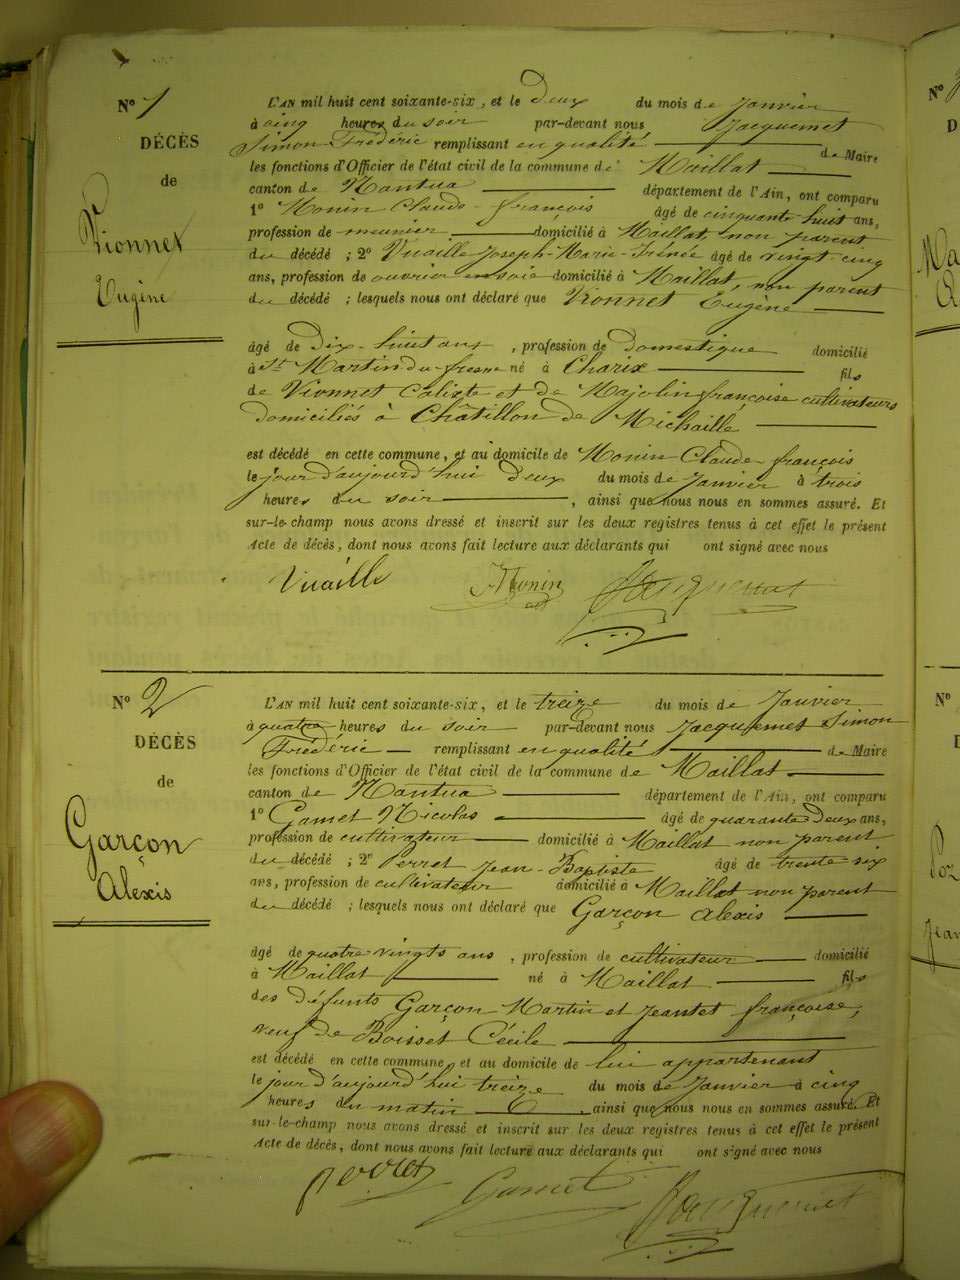 N° 1
DÉCÈS
de
Vionnet
Eugène
L'AN mil huit cent soixante-six, et le Deux du mois de Janvier
à cinq heures du soir par-devant nous Jacquemet
Simon Frédéric remplissant en qualité de Maire
les fonctions d'Officier de l'état civil de la commune de Maillat
canton de Nantua département de l'Ain, ont comparu
1° Monin Claude-françois âgé de cinquante huit ans,
profession de meunier domicilié à Maillat, non parent
du décédé ; 2° Vuaille Joseph-Marie-Irénée âgé de vingt cinq
ans, profession de ouvrier en soie domicilié à Maillat, non parent
du décédé ; lesquels nous ont déclaré que Vionnet Eugène
âgé de Dix-huit ans, profession de Domestique domicilié
à St Martin du fresne né à Charix fils
de Vionnet Calixte et de Majolin françoise cultivateurs
domiciliés à Châtillon de Michaille
est décédé en cette commune, et au domicile de Monin Claude-françois
le jour d'aujourd'hui deux du mois de Janvier à trois
heures du soir, ainsi que nous nous en sommes assuré. Et
sur-le-champ nous avons dressé et inscrit sur les deux registres tenus à cet effet le présent
Acte de décès, dont nous avons fait lecture aux déclarants qui ont signé avec nous
Vuaille Monin Jacquemet
N° 2
DÉCÈS
de
Garçon
Alexis
L'AN mil huit cent soixante-six, et le treize du mois de Janvier
à quatre heures du soir par-devant nous Jacquemet Simon
Frédéric remplissant en qualité de Maire
les fonctions d'Officier de l'état civil de la commune de Maillat
canton de Nantua département de l'Ain, ont comparu
1° Gamet Nicolas âgé de quarante Deux ans,
profession de cultivateur domicilié à Maillat non parent
du décédé ; 2° Perret Jean-Baptiste âgé de trente six
ans, profession de cultivateur domicilié à Maillat non parent
du décédé ; lesquels nous ont déclaré que Garçon Alexis
âgé de quatre vingts ans, profession de cultivateur domicilié
à Maillat né à Maillat fils
des défunts Garçon Martin et Jeantet françoise,
veuf de Boisset Cécile
est décédé en cette commune, et au domicile de lui appartenant
le jour d'aujourd'hui treize du mois de Janvier à cinq
heures du matin, ainsi que nous nous en sommes assuré. Et
sur-le-champ nous avons dressé et inscrit sur les deux registres tenus à cet effet le présent
Acte de décès, dont nous avons fait lecture aux déclarants qui ont signé avec nous
Perret Gamet Jacquemet